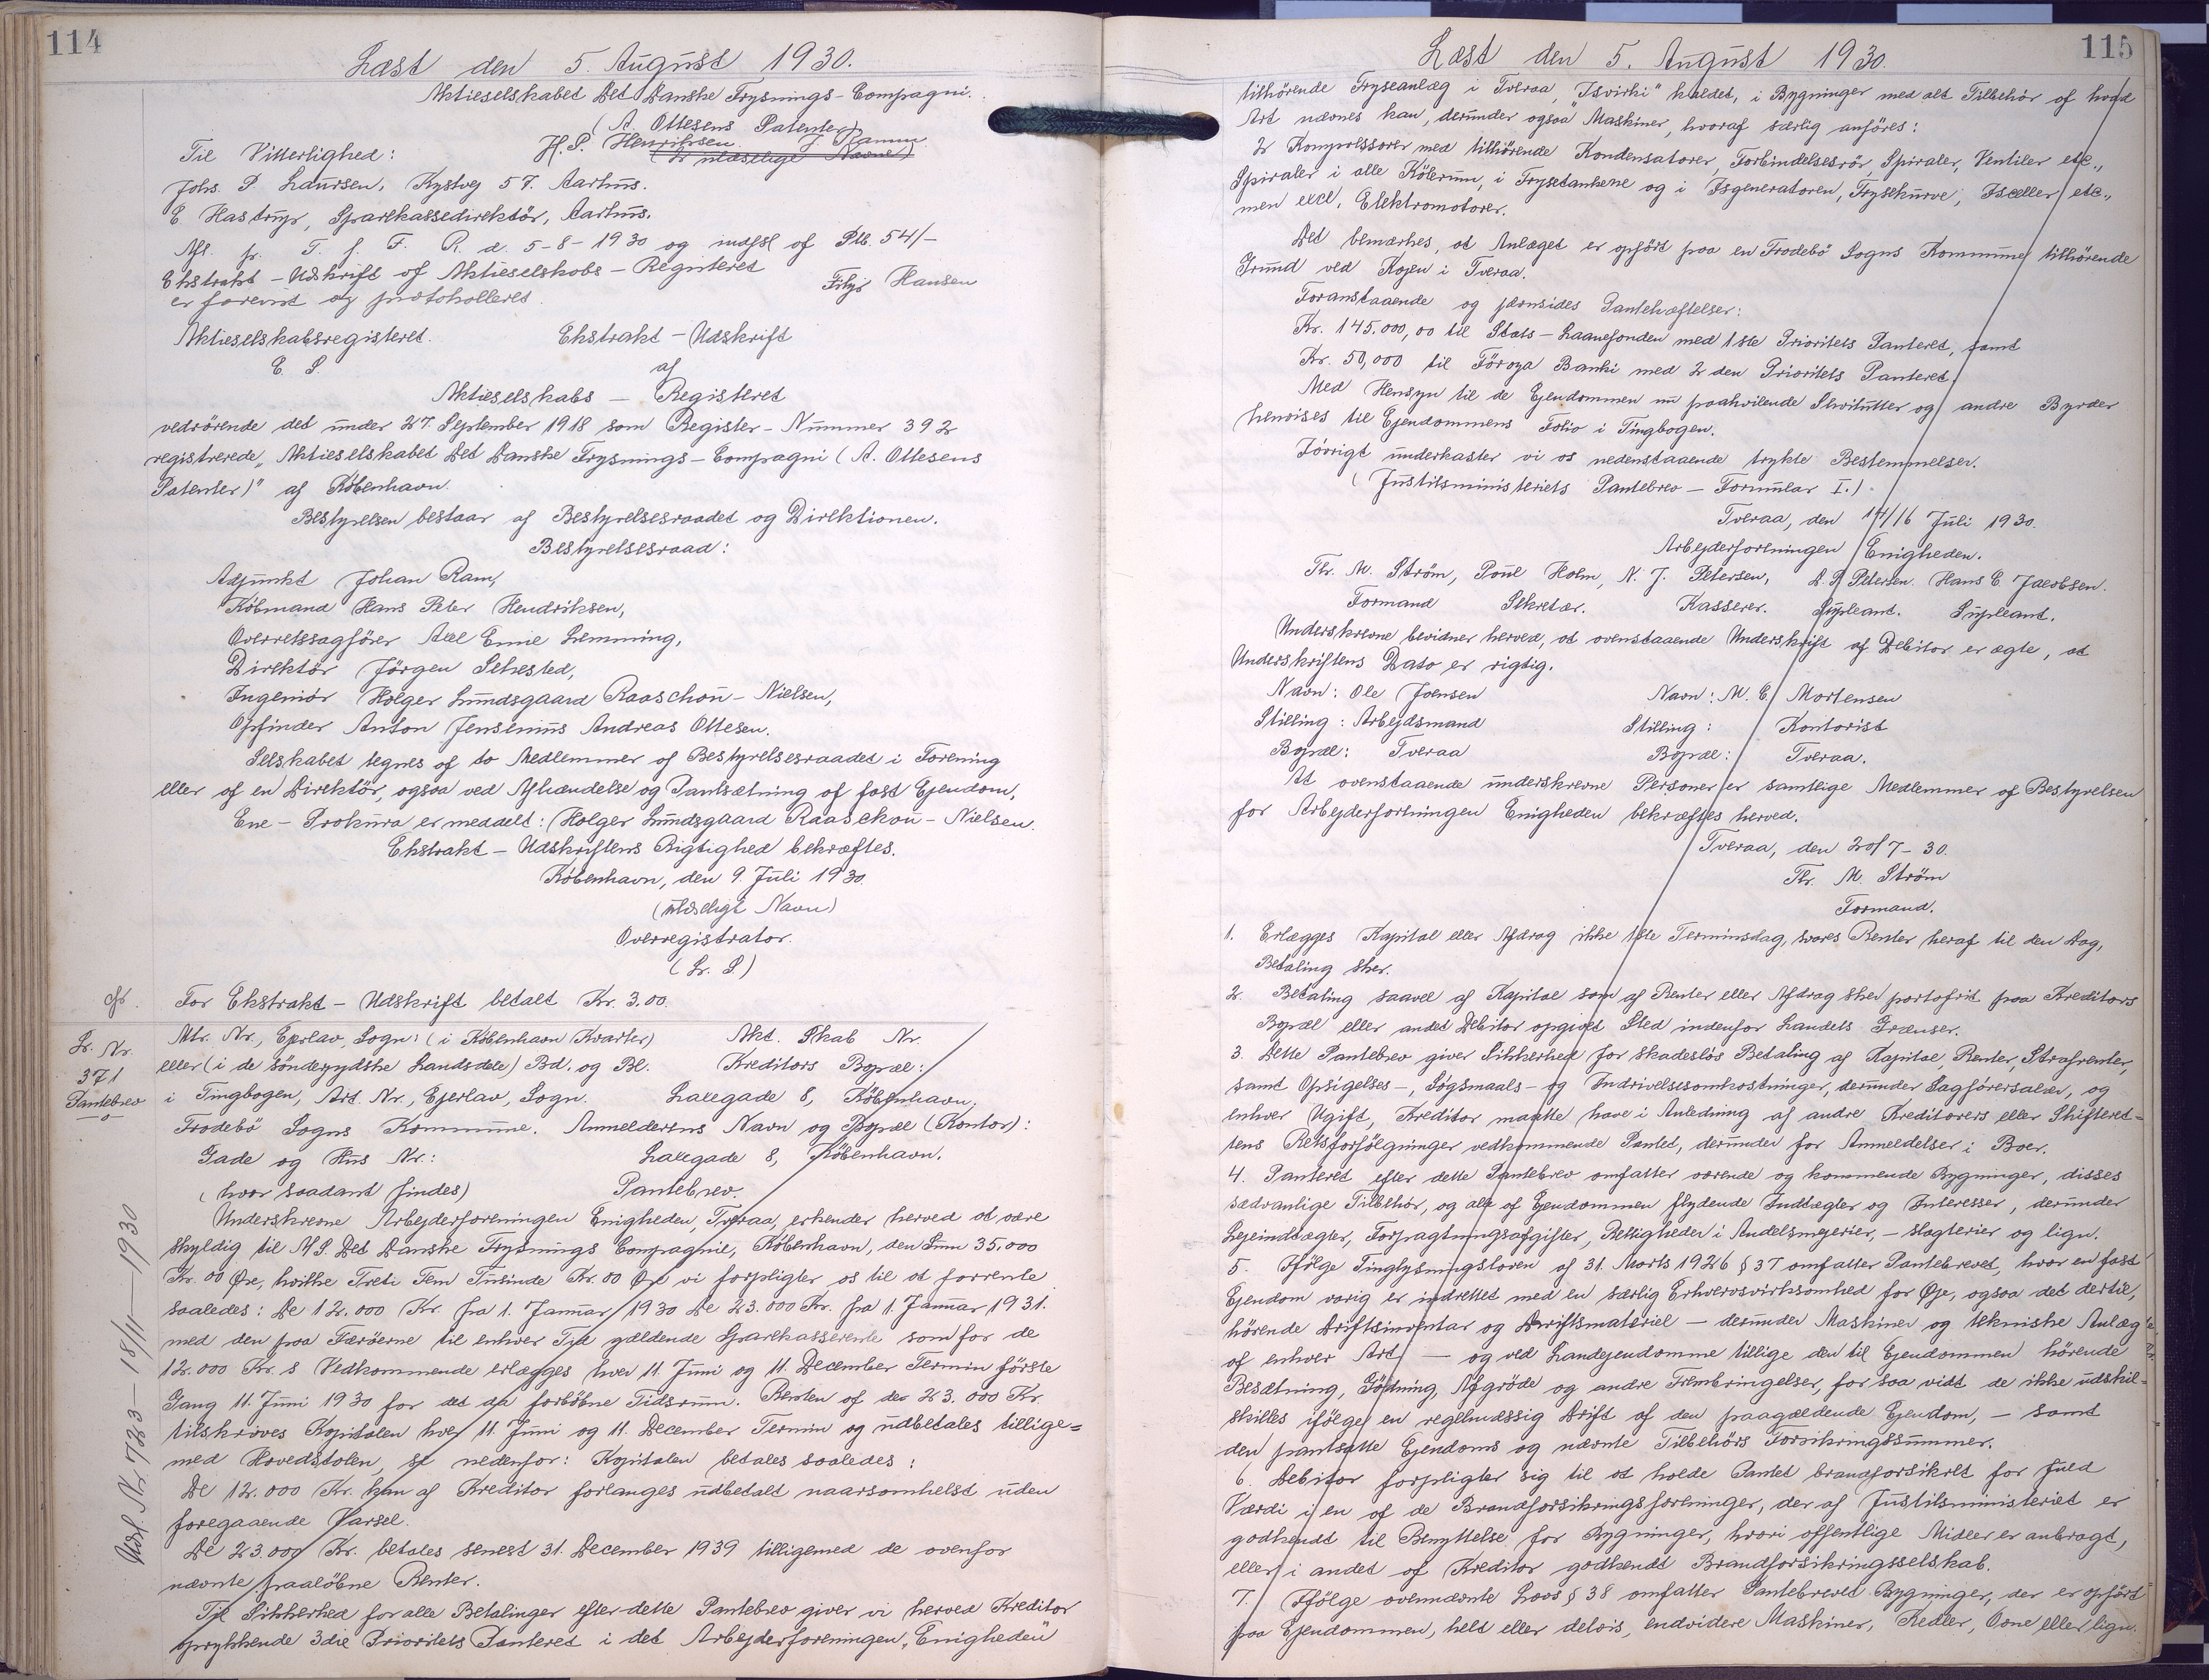 114
Læst den 5. August 1930.
Aktieselskabet Det Danske Frysnings-Compagni.
(A. Ottesens Patenter)
H. P. Henriksen. J. Ramm
Til Vitterlighed: (2 ulæselige Navne)
Johs. P. Laursen, Kystvej 57. Aarhus.
E Hastrup, Sparekassedirektör, Aarhus.
Afl. pr. T. f. F. R. d. 5-8-1930 og indfst af Ptb. 54/-
Ekstrakt-Udskrift af Aktieselskabs-Registeret
er forevist og protokolleret. Filip Hansen
Aktieselskabsregisteret. Ekstrakt-Udskrift
E. S. af
Aktieselskabs — Registeret
vedrörende det under 27. September 1918 som Register-Nummer 392
registrerede „Aktieselskabet Det Danske Frysnings-Compagni (A. Ottesens
Patenter)" af København.
Bestyrelsen bestaar af Bestyrelsesraadet og Direktionen.
Bestyrelsesraad:
Adjunkt Johan Ram,
Købmand Hans Peter Hendriksen,
Overretssagförer Axel Emie Lemming,
Direktör Jörgen Sehested,
Ingeniör Holger Lundsgaard Raaschou-Nielsen,
Opfinder Anton Jensenius Andreas Ottesen.
Selskabet tegnes af to Medlemmer af Bestyrelsesraadet i Forening
eller af en Direktör, ogsaa ved Afhændelse og Pantsætning af fast Ejendom.
Ene-Prokura er meddelt: Holger Lundsgaard Raaschou-Nielsen.
Ekstrakt-Udskriftens Rigtighed bekræftes.
København, den 9. Juli 1930.
(ulæseligt Navn)
Overregistrator.
(Lr. S)
For Ekstrakt-Udskrift betalt Kr. 3.00.
Lr. Nr.
371
Pantebrev
Mtr. Nr., Ejerlav, Sogn: (i København Kvarter) Akt. Skab Nr.
eller (i de sönderjydske Landsdele) Bd. og Bl. Kreditors Bopæl:
i Tingbogen, Art. Nr., Ejerlav, Sogn. Laxegade 8, København.
Frodebö Sogns Kommune. Anmelderens Navn og Bopæl (Kontor):
Gade og Hus Nr.: Laxegade 8, København.
(hvor saadant findes) Pantebrev.
Underskrevne Arbejderforeningen Enigheden, Tveraa, erkender herved at være
skyldig til A/S. Det Danske Frysnings Compagnie, København, den Sum 35.000
Kr. 00 Øre, hvilke Treti Fem Tusinde Kr. 00 Øre vi forpligter os til at forrente
saaledes: De 12.000 Kr. fra 1. Januar 1930 De 23.000 Kr. fra 1. Januar 1931.
med den paa Færöerne til enhver Tid gældende Sparekasserente som for de
12.000 Kr. s Vedkommende erlægges hver 11. Juni og 11. December Termin første
Gang 11. Juni 1930 for det da forløbne Tidsrum. Renten af de 23.000 Kr.
tilskrives Kapitalen hver 11. Juni og 11. December Termin og udbetales tillige=
med Hovedstolen, se nedenfor: Kapitalen betales saaledes:
De 12.000 Kr. kan af Kreditor forlanges udbetalt naarsomhelst uden
foregaaende Varsel.
De 23.000 Kr. betales senest 31. December 1939 tilligemed de ovenfor
nævnte paaløbne Renter.
Til Sikkerhed for alle Betalinger efter dette Pantebrev giver vi herved Kreditor
oprykkende 3die Prioritets Panteret i det Arbejderforeningen „Enigheden"
Udsl. Nr 723 — 18/11 — 1930
115
Læst den 5. August 1930.
tilhörende Fryseanlæg i Tveraa, „Isvirki" kaldet, i Bygninger med alt Tilbehör af hvad
Art nævnes kan, derunder ogsaa Maskiner, hvoraf særlig anföres:
2 Kompressorer med tilhörende Kondensatorer, Forbindelsesrör, Spiraler, Ventiler etc.,
Spiraler i alle Kölerum, i Frysetankene og i Isgeneratoren, Frysekurve, Isceller etc.,
men excl. Elektromotorer.
Det bemærkes, at Anlæget er opført paa en Frodebö Sogns Kommune tilhörende
Grund ved Kajen i Tveraa.
Foranstaaende og jævnsides Pantehæftelser:
Kr. 145.000,00 til Stats-Laanefonden med 1ste Prioritets Panteret, samt
Kr. 50,000 til Föroya Banki med 2den Prioritets Panteret.
Med Hensyn til de Ejendommen nu paahvilende Servitutter og andre Byrder
henvises til Ejendommens Folio i Tingbogen.
Iövrigt underkaster vi os nedenstaaende trykte Bestemmelser.
(Justitsministeriets Pantebrev — Formular I.)
Tveraa, den 14/16 Juli 1930.
Arbejderforeningen Enigheden.
Thr. M. Ström, Poul Holm, N. J. Petersen, D. P. Petersen. Hans E Jacobsen.
Formand Sekretær. Kasserer. Supleant. Supleant.
Underskrevne bevidner herved, at ovenstaaende Underskrift af Debitor er ægte, at
Underskriftens Dato er rigtig.
Navn: Ole Joensen Navn: M. E. Mortensen
Stilling: Arbejdsmand Stilling: Kontorist
Bopæl: Tveraa Bopæl: Tveraa.
At ovenstaaende underskrevne Personer er samtlige Medlemmer af Bestyrelsen
for Arbejderforeningen Enigheden bekræftes herved.
Tveraa, den 20/7-30.
Thr. M. Ström
Formand.
1. Erlægges Kapital eller Afdrag ikke 1ste Terminsdag, svares Renter heraf til den Dag,
Betaling sker.
2. Betaling saavel af Kapital som af Renter eller Afdrag sker portofrit paa Kreditors
Bopæl eller andet Debitor opgivet Sted indenfor Landets Grænser.
3. Dette Pantebrev giver Sikkerhed for skadesløs Betaling af Kapital, Renter, Strafrenter,
samt Opsigelses-, Sögsmaals- og Indrivelsesomkostninger, derunder Sagförersalær, og
enhver Ugift, Kreditor maatte have i Anledning af andre Kreditorers eller Skifteret=
tens Retsforfölgninger vedkommende Pantet, derunder for Anmeldelser i Boer.
4. Panteret efter dette Pantebrev omfatter værende og kommende Bygninger, disses
sædvanlige Tilbehör, og alle af Ejendommen flydende Indtægter og Interesser, derunder
Lejeindtægter, Forpagtningsafgifter, Rettigheder i Andelsmejerier, -slagterier og lign.
5. Ifölge Tinglysningsloven af 31. Marts 1926 § 37 omfatter Pantebrevet, hvor en fast
Ejendom varig er indrettet med en særlig Erhvervsvirksomhed for Øje, ogsaa det dertil,
hörende Driftsinventar og Driftsmateriel — derunder Maskiner og tekniske Anlæg
af enhver Art — og ved Landejendomme tillige den til Ejendommen hörende
Besætning, Gödning, Afgröde og andre Frembringelser, for saa vidt de ikke udskil=
skilles ifölge en regelmæssig Drift af den paagældende Ejendom, — samt
den pantsatte Ejendoms og nævnte Tilbehörs Forsikringssummer.
6. Debitor forpligter sig til at holde Pantet brandforsikret for fuld
Værdi i en af de Brandforsikringsforeninger, der af Justitsministeriet er
godkendt til Benyttelse for Bygninger, hvori offentlige Midler er anbragt,
eller i andet af Kreditor godkendt Brandforsikringsselskab.
7. Ifölge ovennævnte Lovs § 38 omfatter Pantebrevet Bygninger, der er opført
paa Ejendommen, helt eller delvis, endvidere Maskiner, Kedler, Ovne eller lign.